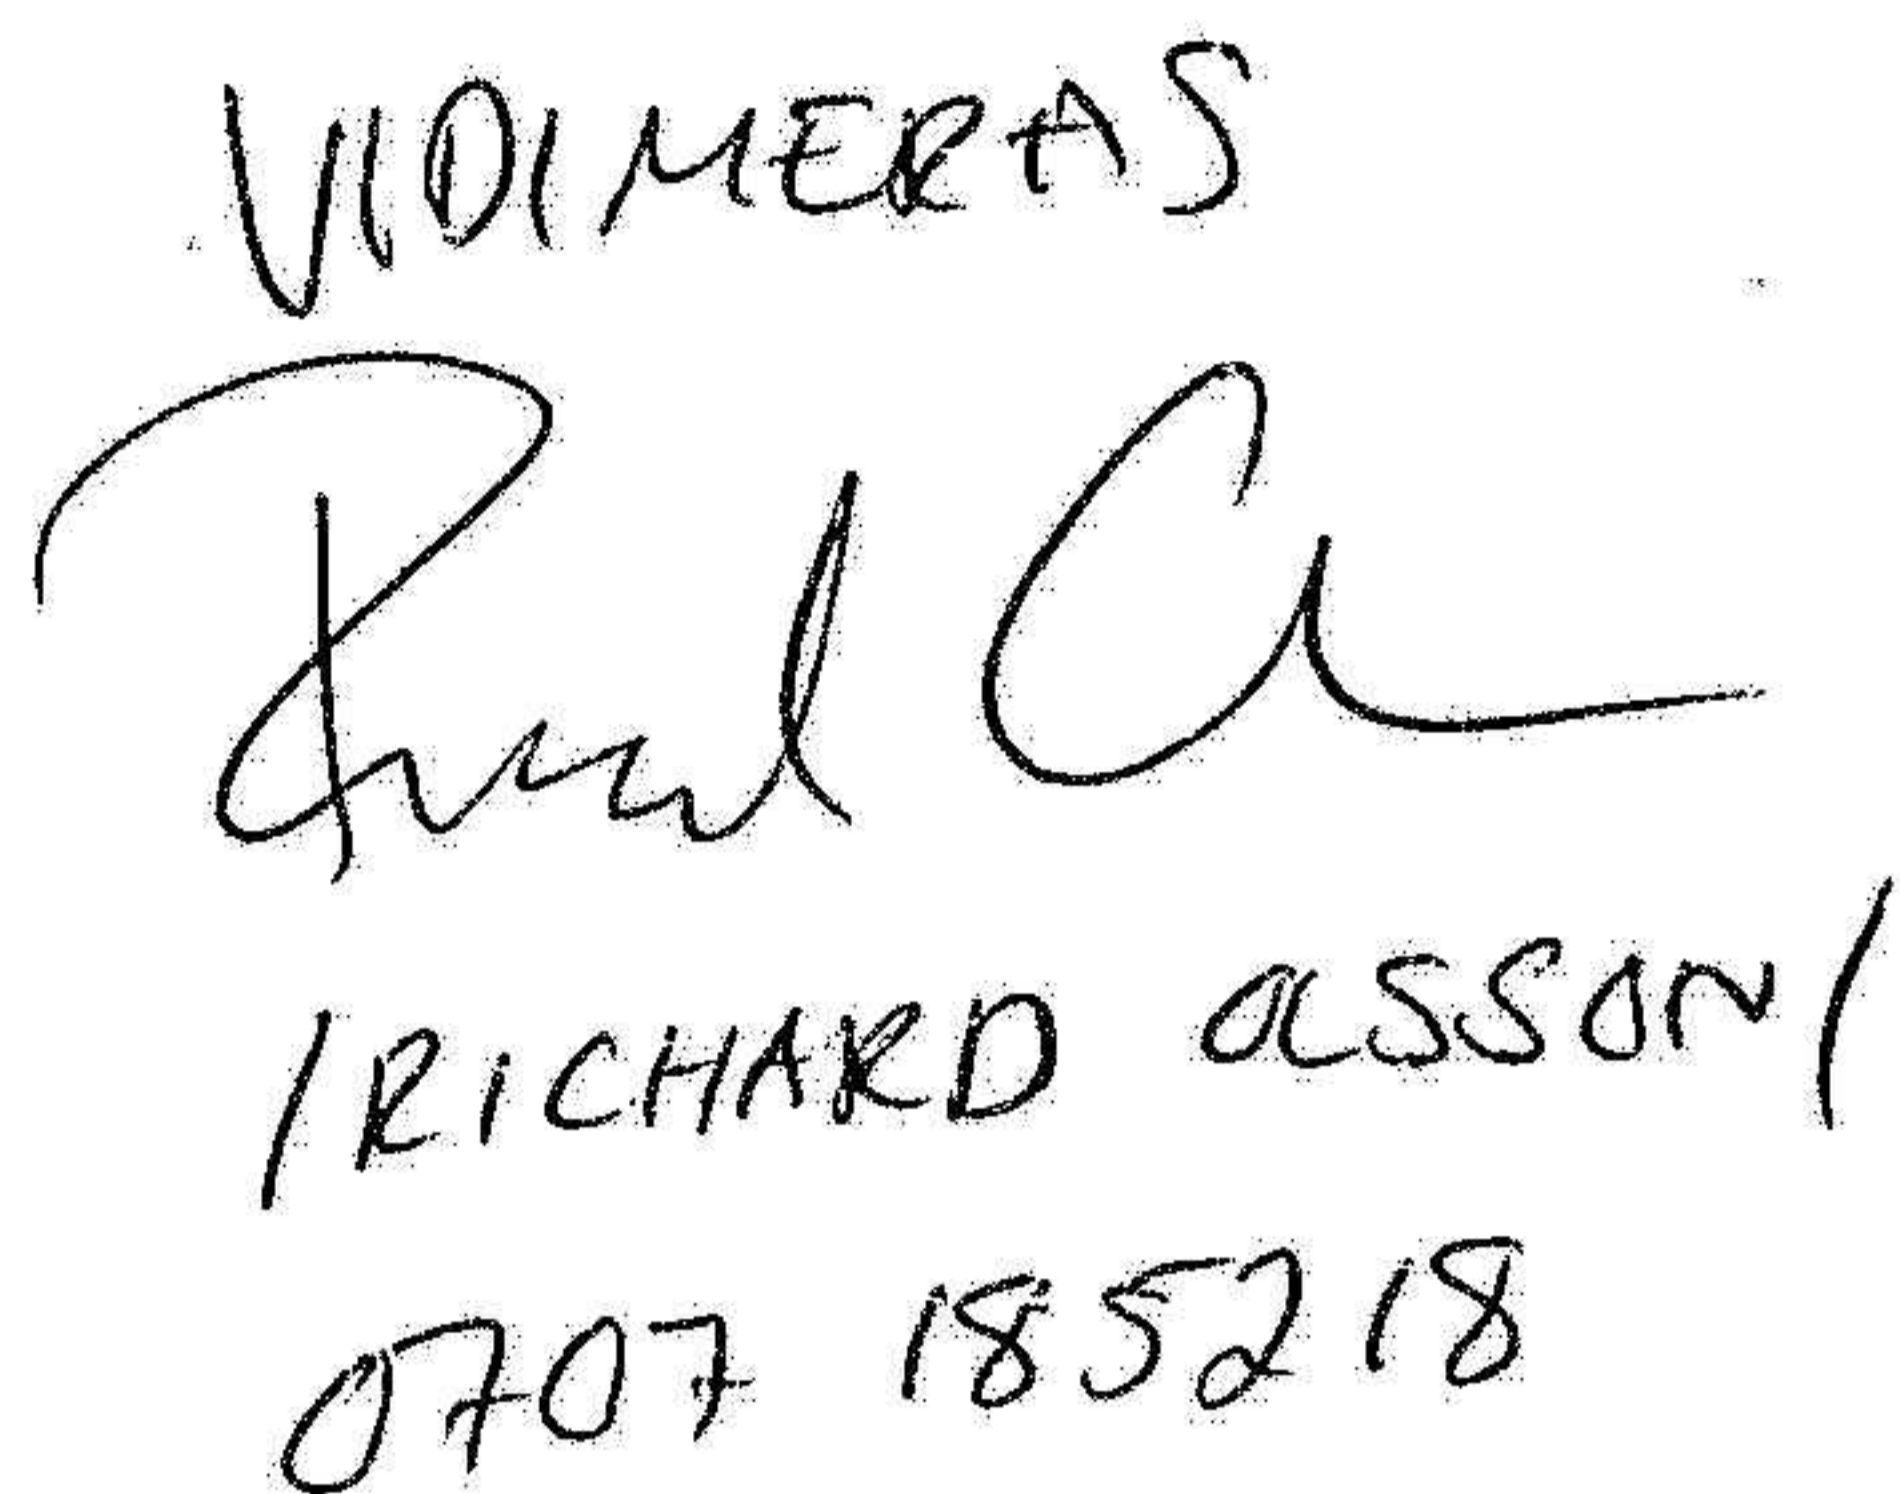 VIDIMERAS
/RICHARD OLSSON/
0707 185218